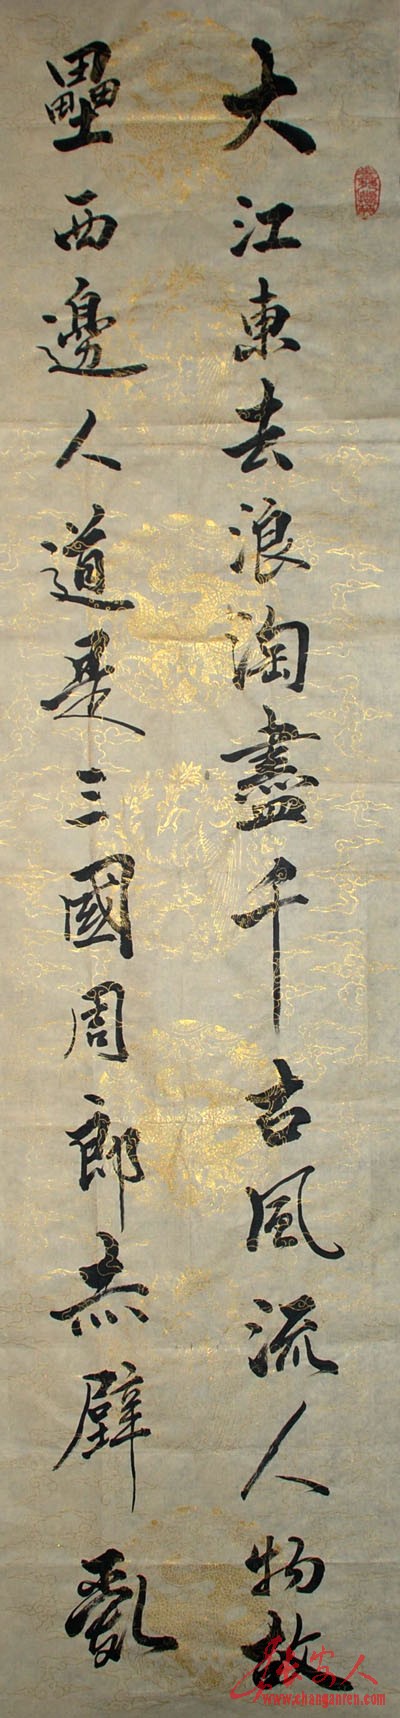 大江東去浪淘盡千古風流人物故
壘西邊人道是三國周郎赤壁亂
长安人
www.changanren.com